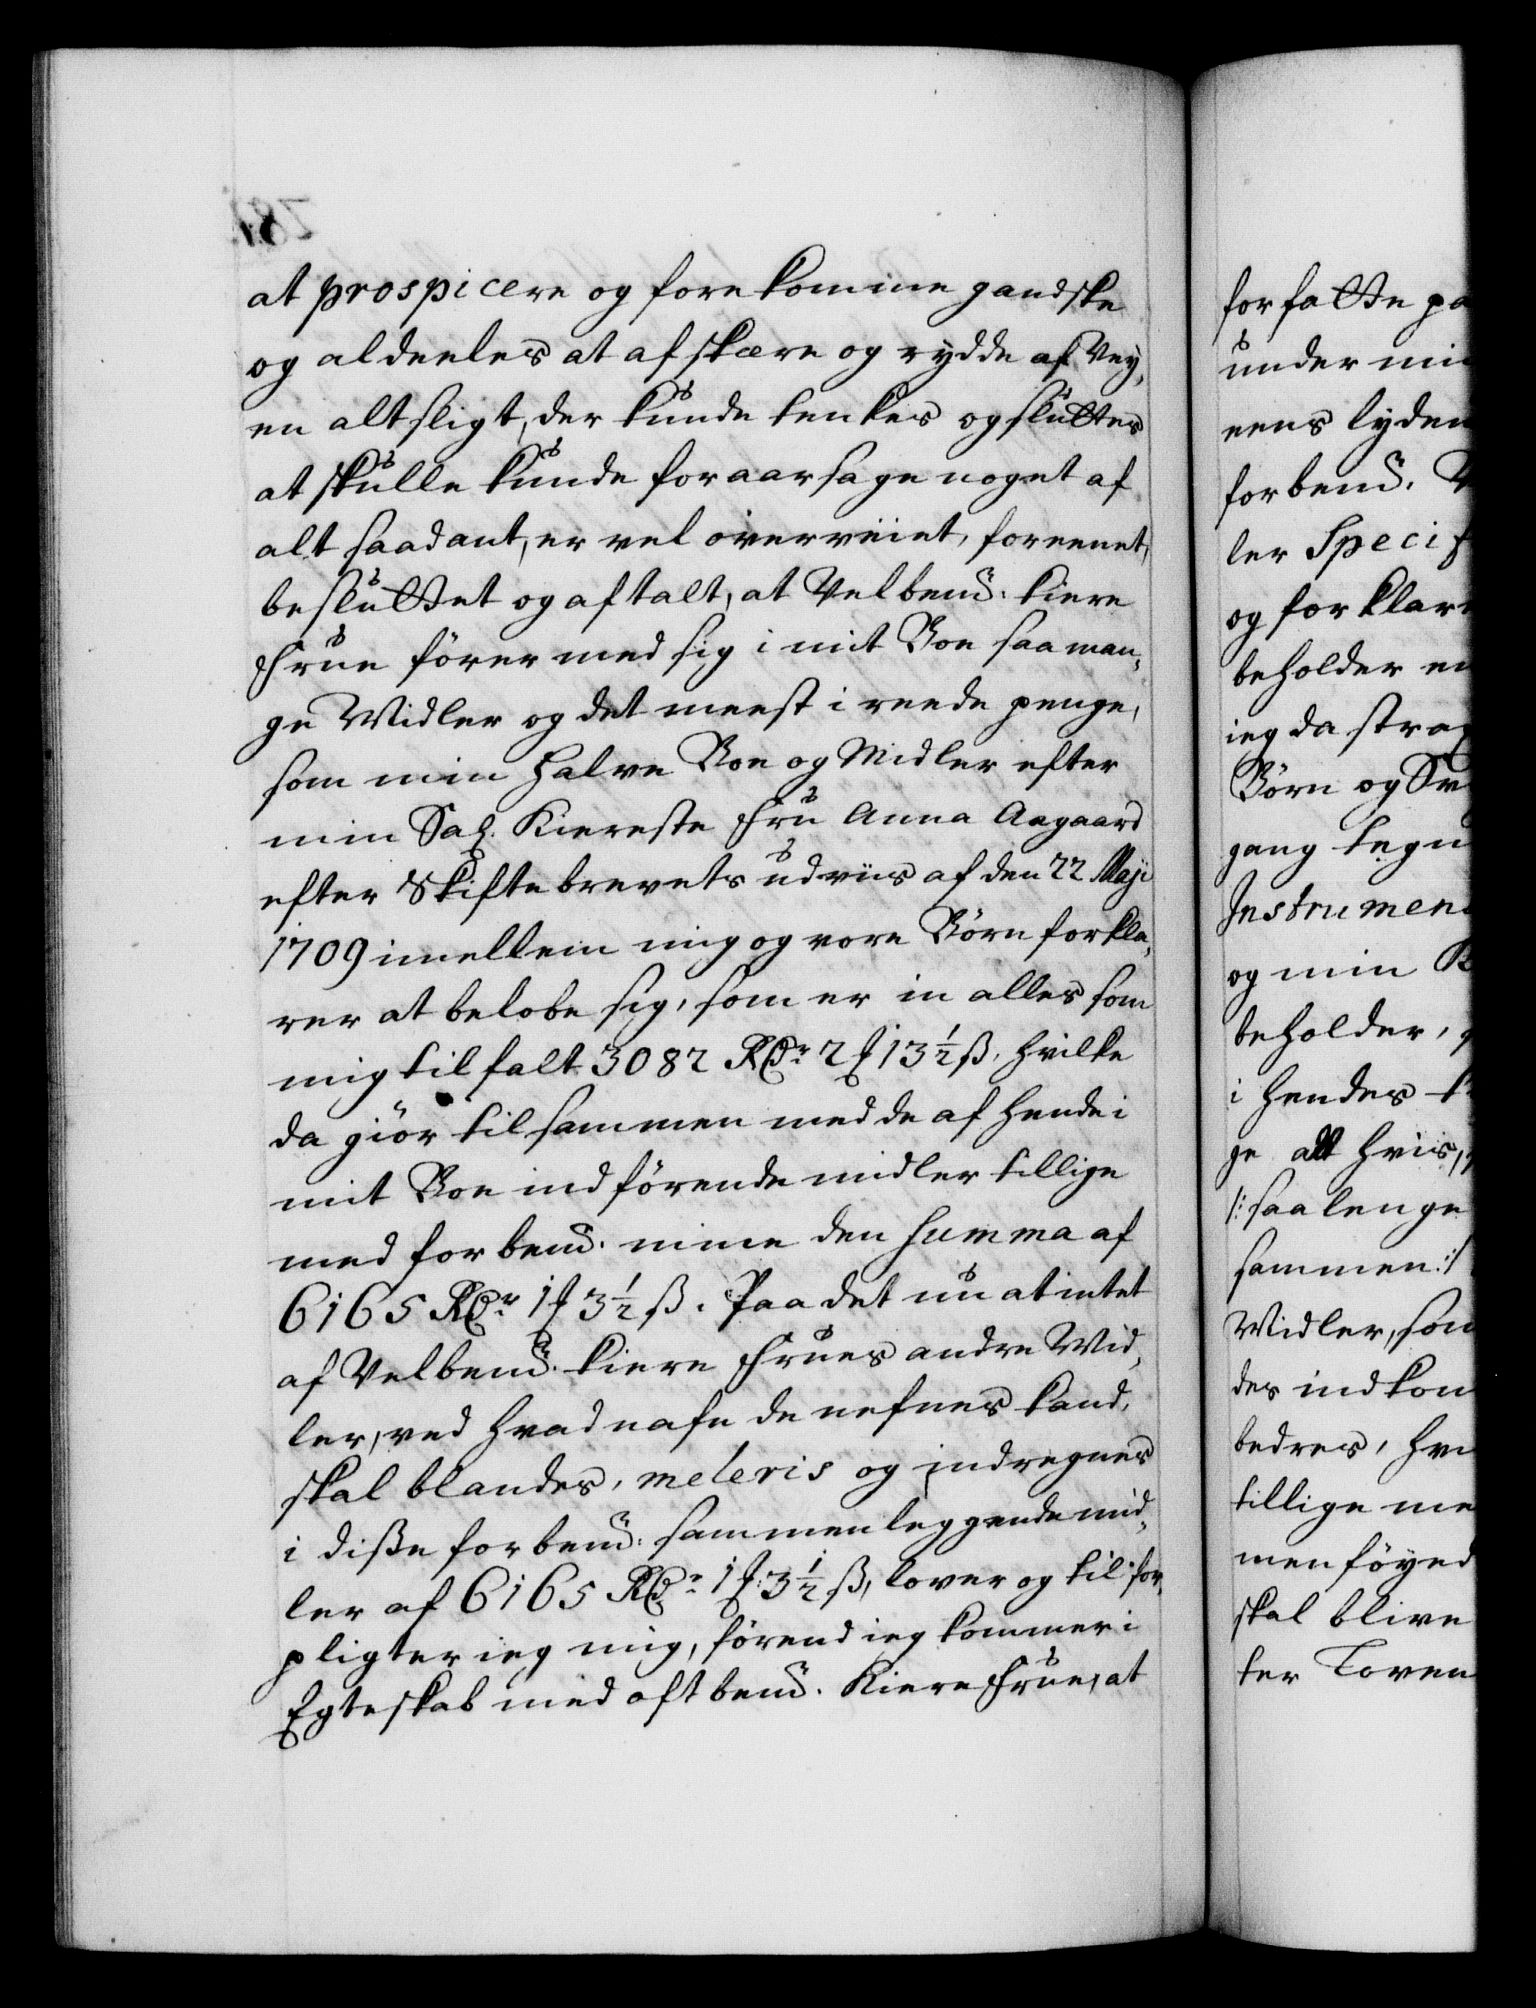 at prospicere og forekomme gandske
og aldeeles at afskære og rydde af Vey,
en alt sligt, der kunde tenkes og sluttes
at skulle kunde foraarsage noget af
alt saadant, er vel overveiet, foreenet,
besluttet og aftalt, at Velbemd. kiere
Frue förer med sig i mit Boe saa man,
ge Midler og det meest i reede penge,
som min halve Boe og Midler efter
min Sal. Kiereste Fru Anna Aagaard
efter Skiftebrevets udviis af den 22 Maji
1709 imellem mig og vore Börn forkla,
rer at belobe sig, som er in alles som
mig tilfalt 3082 Rdr 2 ℳ 13½ ß. hvilke
da giör tilsammen med de af hende i
mit Boe indförende midler tillige
med forbemd. mine den Summa af
6165 Rdr 1 ℳ 3½ ß. Paa det nu at intet
af Velbemd. kiere Frues andre Mid,
ler, ved hvad nafn de nefnes kand,
skal blandes, meleris og indregnes
i disse forbemd. sammenleggende mid,
ler af 6165 Rdr 1 ℳ: 3½ ß, lover og til for,
pligter ieg mig, förend ieg kommer i
Egteskab med oftbemd. Kiere Frue, at
forfatte
under
eens
forbemd.
ler
og
beholder
ieg da
Börn og
gang
og min
beholder,
i hendes
ge alt hvis,
/: saalenge
sammen :/
Midler,
des
bedres,
tillige
skal blive
ter